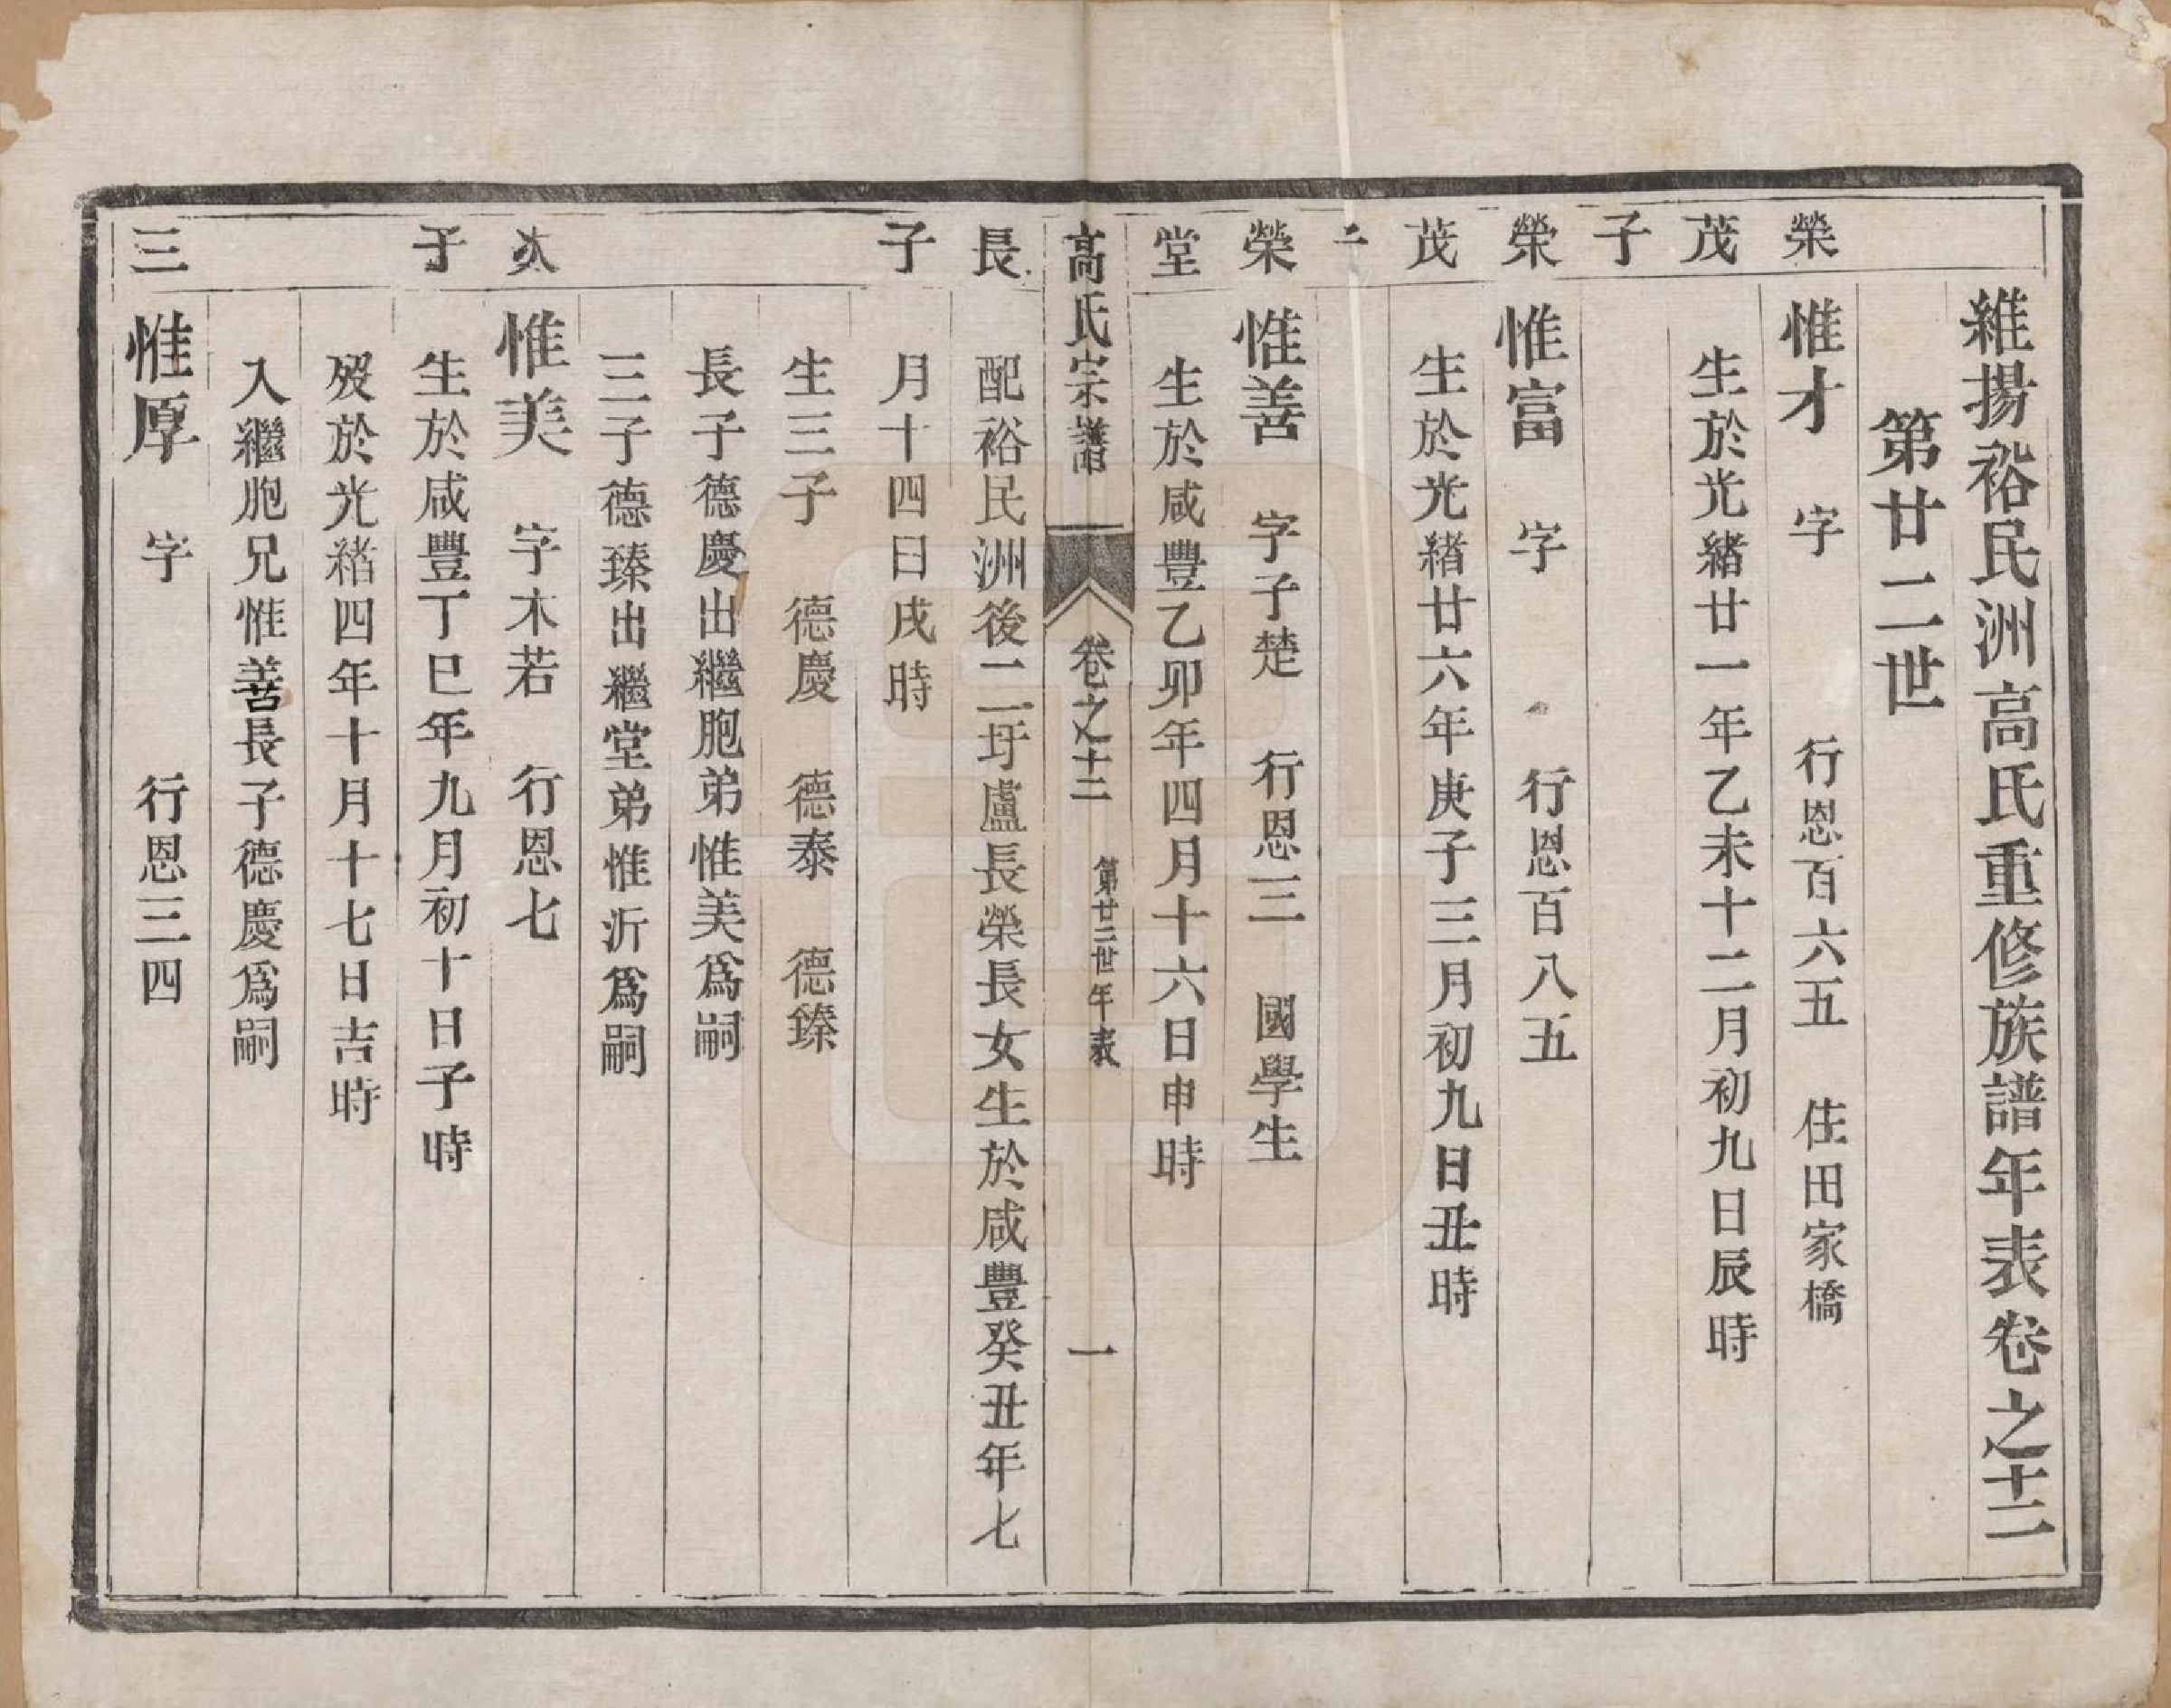 維揚裕民洲高氏重修族譜年表卷之十二
第廿二世
榮
惟才 字 行恩百六五 住田家橋
茂
生於光緒廿一年乙未十二月初九日辰時
子
榮
惟富 字 行恩百八五
茂
生於光緒廿六年庚子三月初九日丑時
二
榮
惟善 字子楚 行恩三 國學生
堂
生於咸豐乙卯年四月十六日申時
高氏宗譜 卷之十二 第廿二世年表 一
長
配裕民洲後二圩盧長榮長女生於咸豐癸丑年七
子
月十四日戌時
生三子 德慶 德泰 德臻
長子德慶出繼胞弟惟美爲嗣
三子德臻出繼堂弟惟沂爲嗣
次
惟美 字木若 行恩七
子
生於咸豐丁巳年九月初十日子時
歿於光緒四年十月十七日吉時
入繼胞兄惟善長子德慶爲嗣
三
惟厚 字 行恩三四